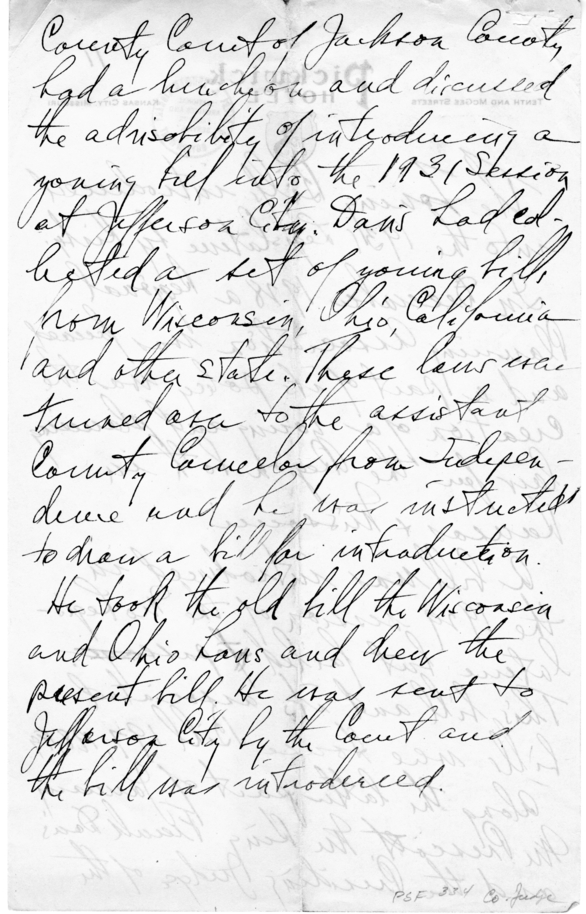 County Court of Jackson County
had a luncheon and discussed
the advisability of introducing a
zoning bill into the 1931 Session
at Jefferson City. Davis had col-
lected a set of zoning bills
from Wisconsin, Ohio, California
and other states. These laws were
turned over to the assistant
County Councelor from Indepen-
dence and he was instructed
to draw a bill for introduction.
He took the old bill the Wisconsin
and Ohio Laws and drew the
present bill. He was sent to
Jefferson City by the Court and
the bill was introduced.
PSF 334 Co. Judge